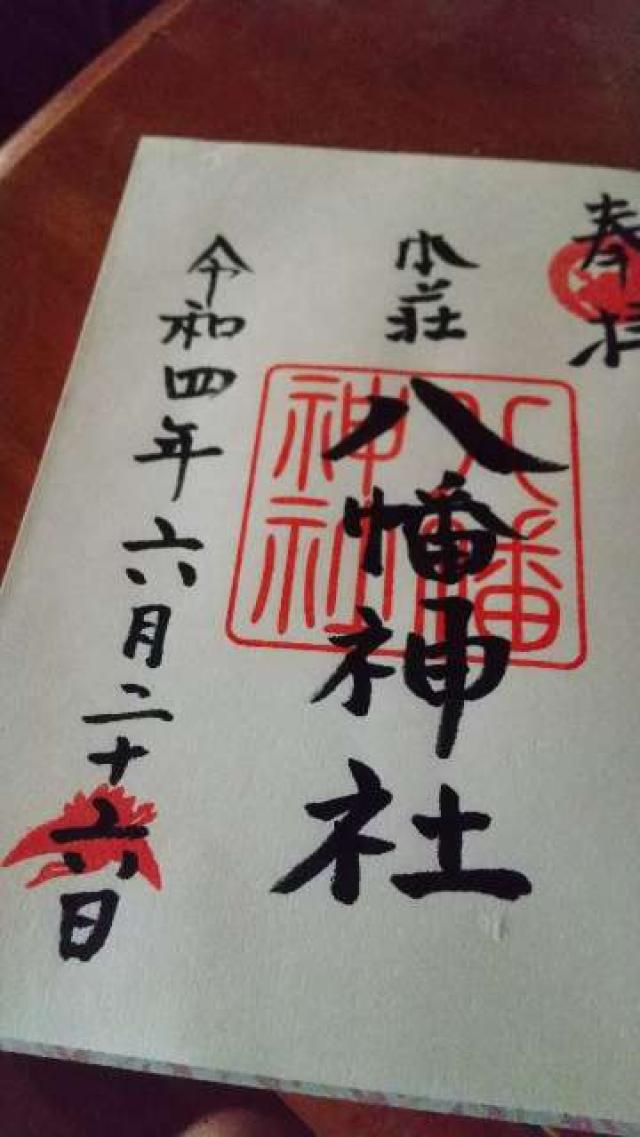 奉拝
小荘
八幡神社
八幡神社
令和四年六月二十六日